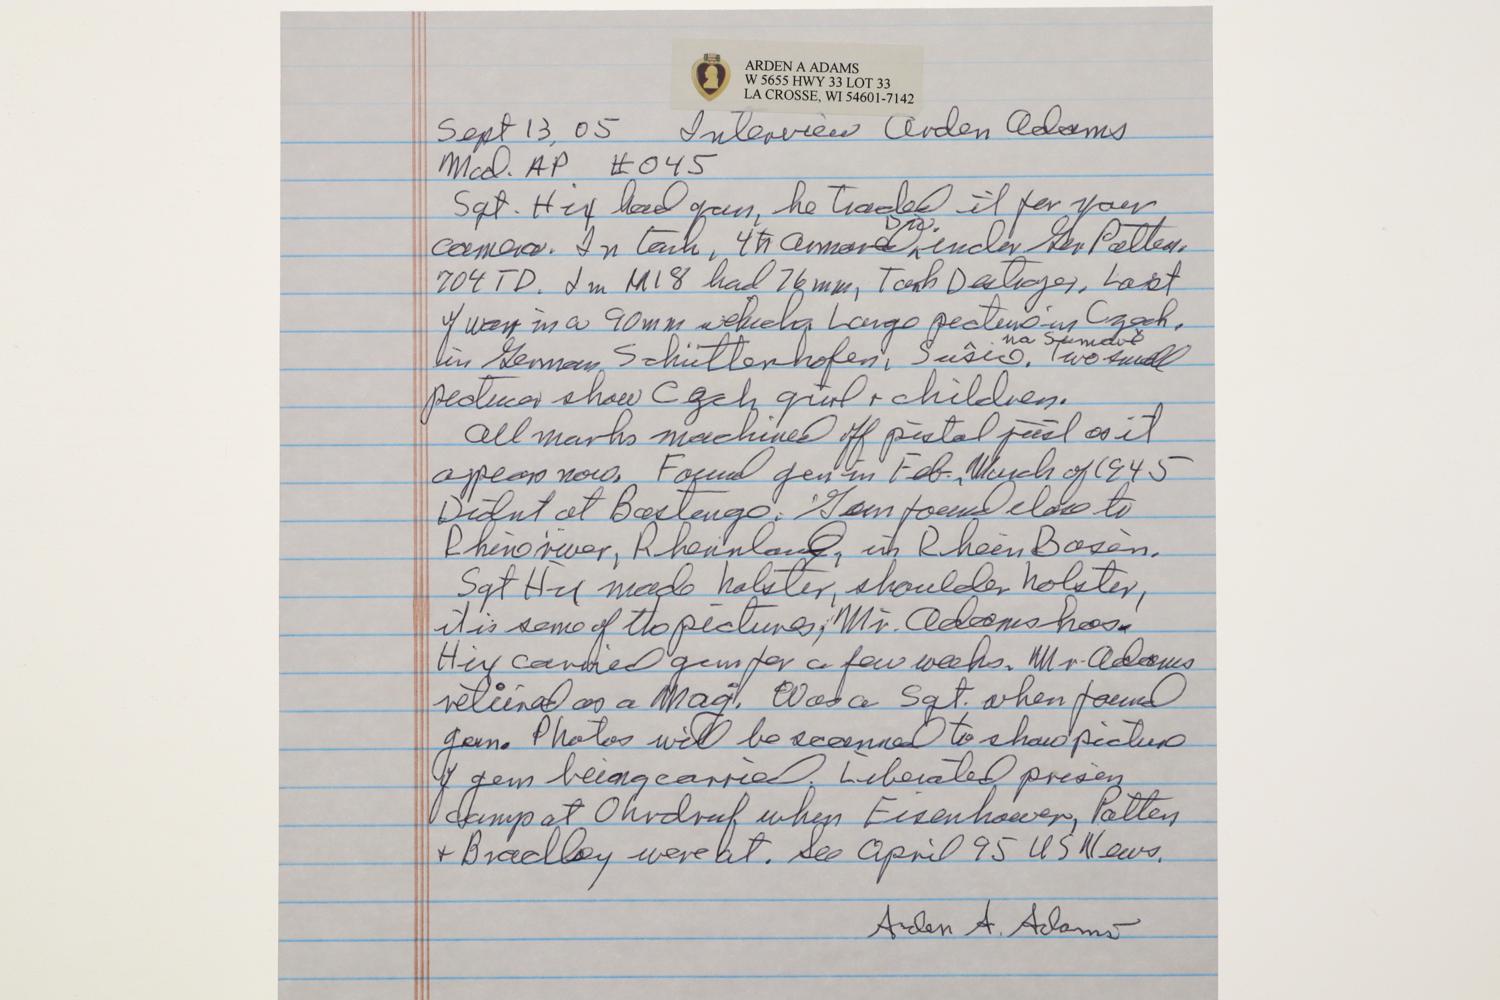 ARDEN A ADAMS
W 5655 HWY 33 LOT 33
LA CROSSE, WI 54601-7142
Sept 13, 05 Interview Arden Adams
Mod. AP #045
Sgt. Hix had gun, he traded it for your
camera. In tank, 4th Armored Div. under Gen Patton.
704 TD. In M18 had 76mm, Tank Destroyer. Last
of war in a 90mm vehicle. Large picture in Czech.
in German Schüttenhofen, Sušic. na Šumavě Two small
pictures show Czech girl + children.
All marks machined off pistol just as it
appears now. Found gun in Feb., March of 1945
Didn't at Bastongo. Gun found close to
Rhine river, Rheinland, in Rhein Basin.
Sgt Hix made holster, shoulder holster,
it is some of the pictures, Mr. Adams has.
Hix carried gun for a few weeks. Mr. Adams
retired as a Maj. Was a Sgt. when found
gun. Photos will be scanned to show picture
of gun being carried. Liberated prison
camp at Ohrdruf when Eisenhower, Patton
+ Bradley were at. See April 95 US News.
Arden A. Adams